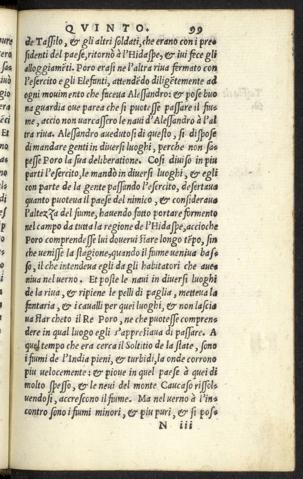 QVINTO. 99
de Tassilo, & gli altri soldati, che erano con i pre
sidenti del paese, ritornò à l'Hidaspe, & iui fece gli
alloggiamēti. Poro erasi ne l'altra riua fermato con
l'esercito e gli Elefanti, attendēdo diligētemente ad
ogni mouimento che faceua Alessandro: & pose buo
ne guardia oue parea che si potesse passare il fiu-
me, accio non varcassero le naui d'Alessandro à l'al
tra riua. Alessandro auedutosi di questo, si dispose
di mandare genti in diuersi luoghi, perche non sa-
pesse Poro la sua deliberatione. Cosi diuiso in piu
parti l'esercito, le mandò in diuersi luoghi, & egli
con parte de la gente passando l'esercito, desertaua
quanto poteua il paese del nimico, & consideraua
l'altezza del fiume, hauendo fatto portare formento
nel campo da tutta la regione de l'Hidaspe, accioche
Poro comprendesse lui douerui stare longo tēpo, sin
che venisse la stagione, quando il fiume ueniua bas-
so, il che intendeua egli da gli habitatori che aue-
niua nel uerno. Et posse le naui in diuersi luoghi
de la riua, & ripiene le pelli di paglia, metteua la
fantaria, & i caualli per quei luoghi, & non lascia
ua star cheto il Re Poro, ne che potesse compren-
dere in qual luogo egli s'apprestaua di passare. A
quel tempo che era cerca il Solstitio de la state, sono
i fiumi de l'India pieni, & turbidi, la onde corrono
piu uelocemente: & pioue in quel paese à quei di
molto spesso, & le neui del monte Caucaso rissol-
uendosi, accrescono il fiume. Ma nel uerno à l'in-
contro sono i fiumi minori, & piu puri, & si pos-
N iii